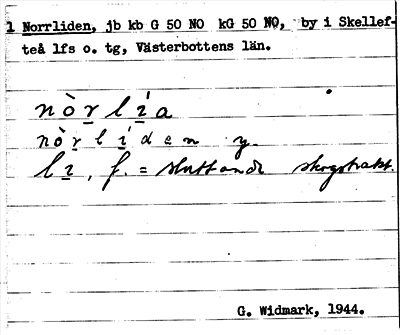 1 Norrliden, jb kb G 50 NO kG 50 NO, by i Skellef-
teå lfs o. tg, Västerbottens län.
nò̱rlìa
nò̱rlìden y.
lı̱, f. = sluttande skogstrakt.
G. Widmark, 1944.